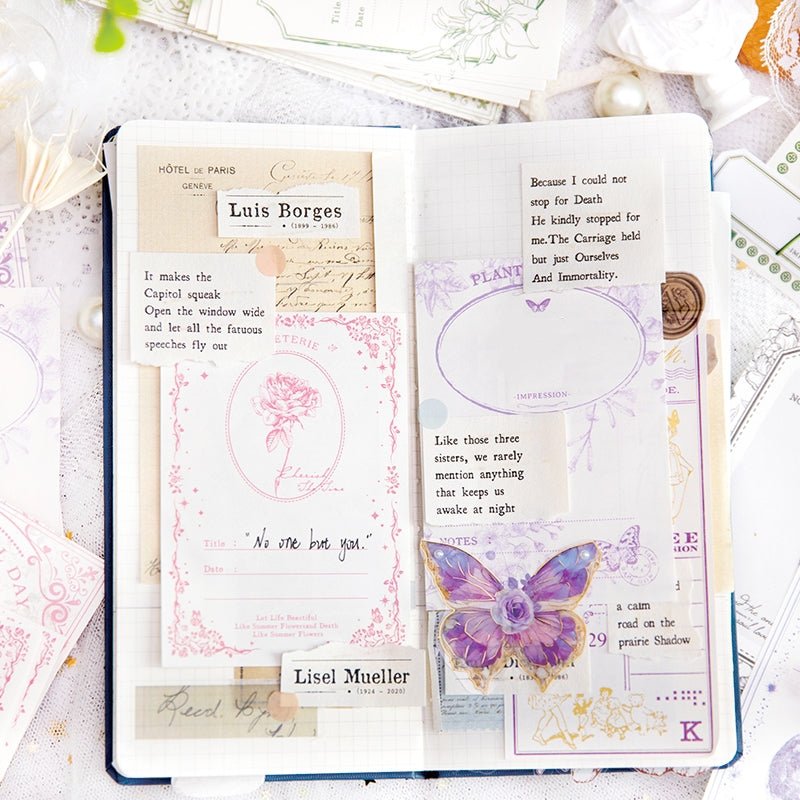 Title :
Date
HÔTEL DE PARIS
GENÈVE
Luis Borges
• (1899 - 1986)
It makes the
Capitol squeak
Open the window wide
and let all the fatuous
speeches fly out
Title : "No one but you."
Date :
Let Life Beautiful
Like Summer Flowerand Death
Like Summer Flowers
Lisel Mueller
• (1924 - 2020)
Because I could not
stop for Death
He kindly stopped for
me.The Carriage held
but just Ourselves
And Immortality.
PLANT
-IMPRESSION-
Like those three
sisters, we rarely
mention anything
that keeps us
awake at night
NOTES :
a calm
road on the
prairie Shadow
29
K